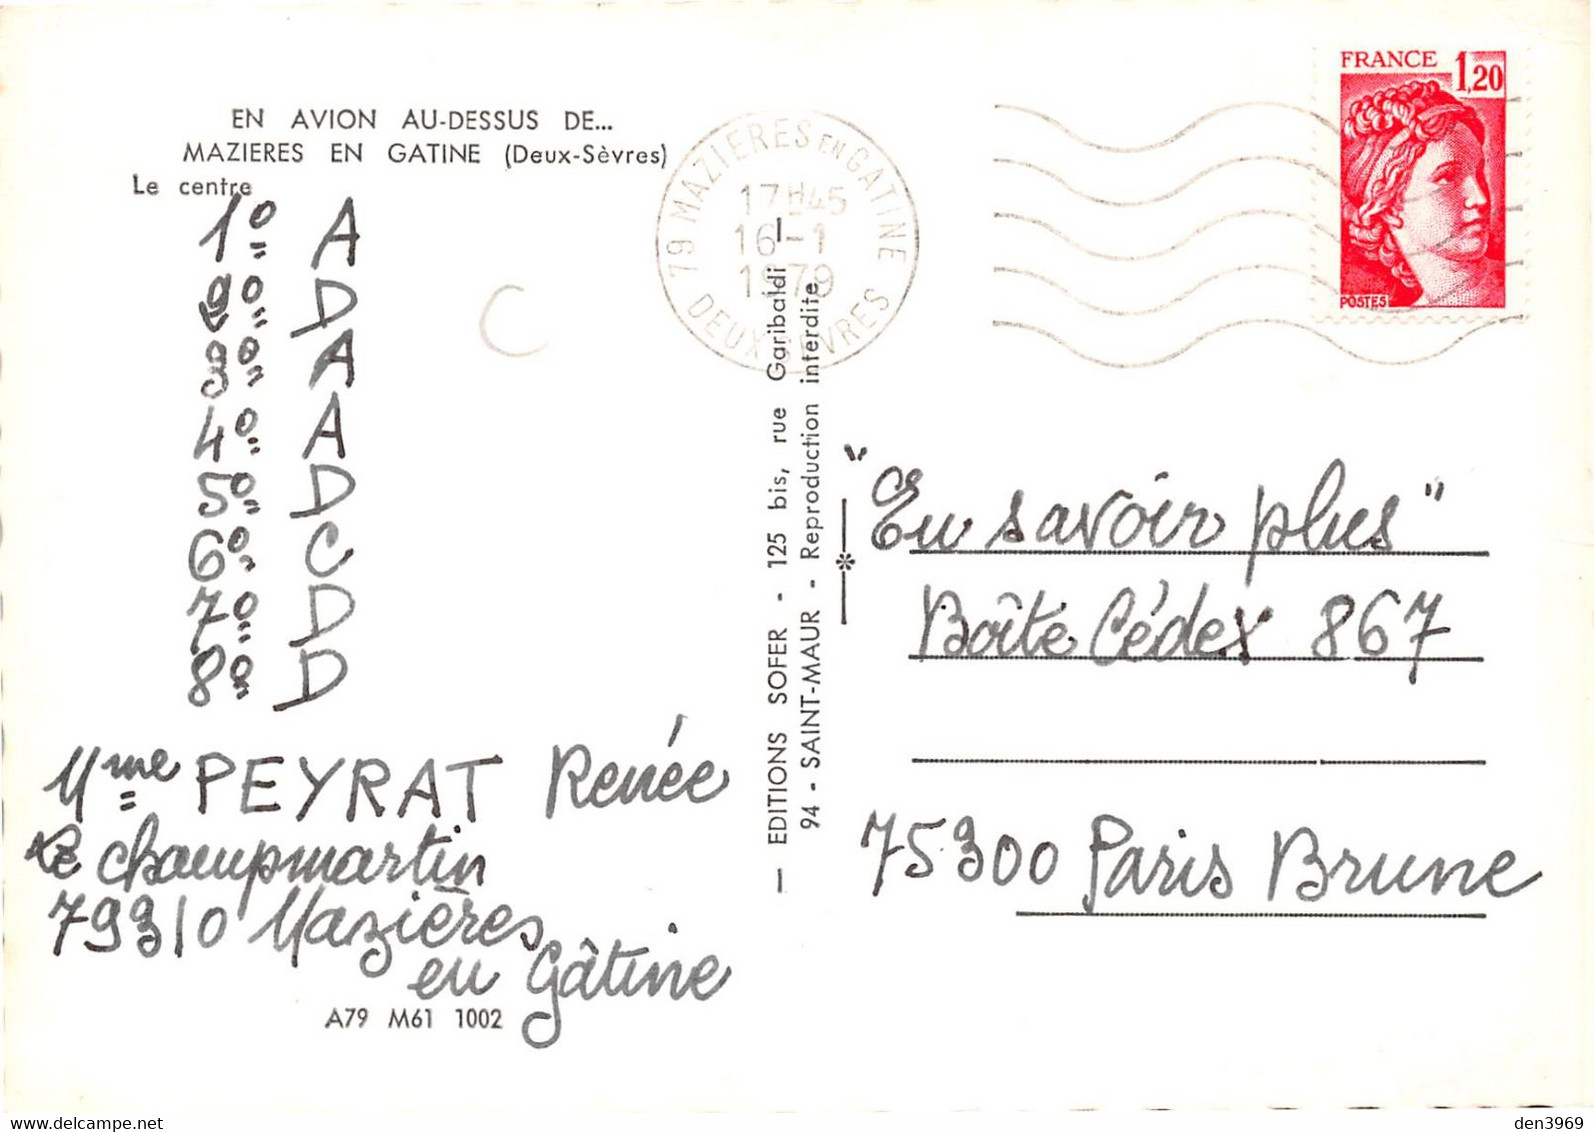 EN AVION AU-DESSUS DE...
MAZIERES EN GATINE (Deux-Sèvres)
Le centre
1º A
2º D
3º A
4º A
5º D
6º C
7º D
8º D
C
Mme PEYRAT Renée
Le champmartin
79310 Mazières
en Gâtine
A79 M61 1002
79 MAZIERES EN GATINE
17H45
16-1
1979
DEUX SEVRES
— EDITIONS SOFER - 125 bis, rue Garibaldi —
94 - SAINT-MAUR - Reproduction interdite
FRANCE 1,20
POSTES
"En savoir plus"
Boîte Cédex 867
75300 Paris Brune
den3969